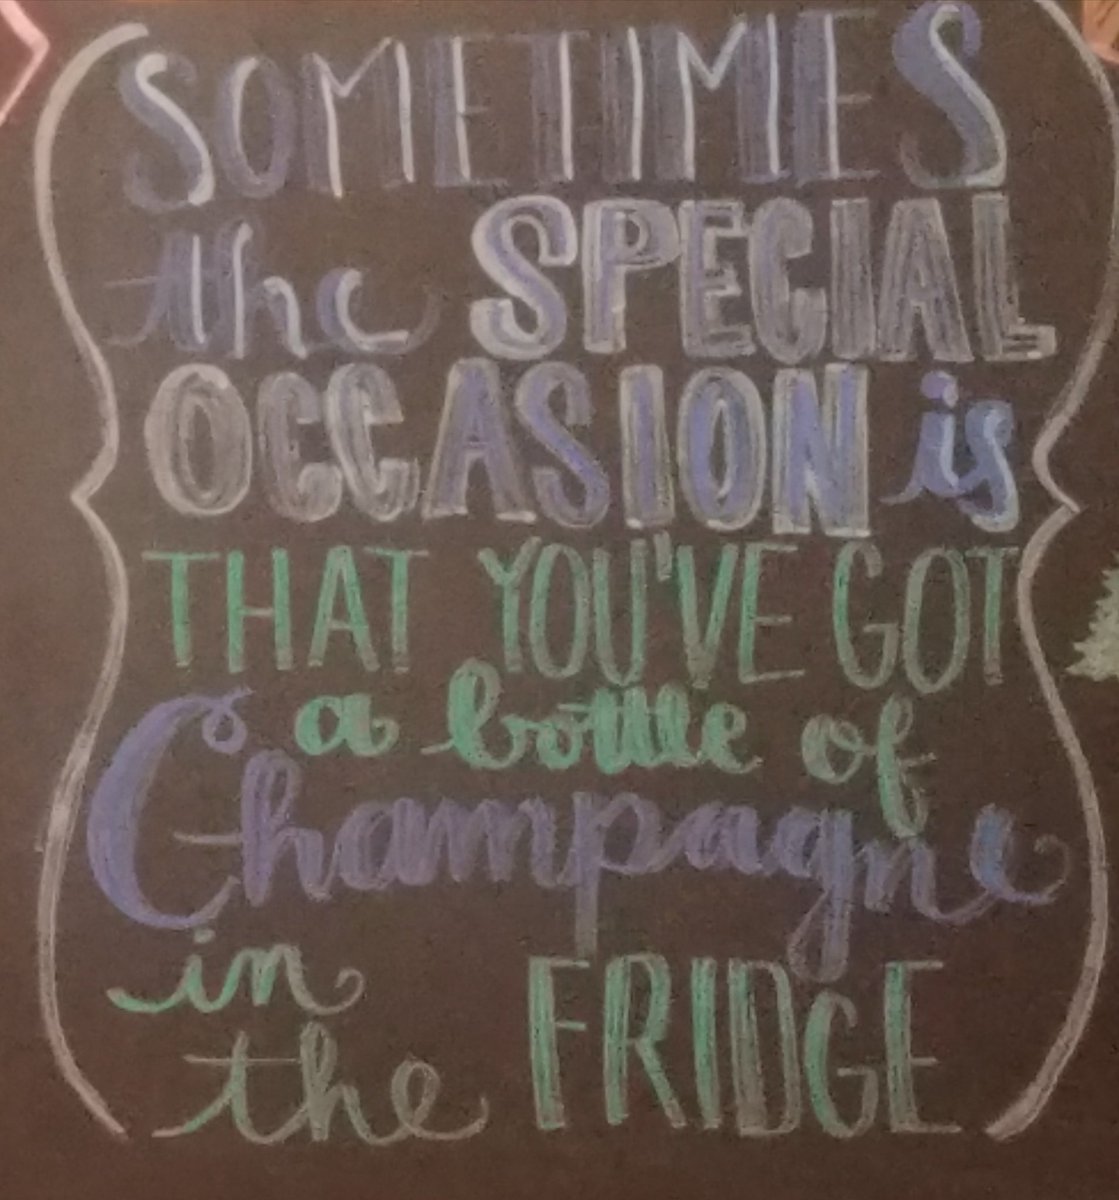 SOMETIMES
the SPECIAL
OCCASION is
THAT YOU'VE GOT
a bottle of
Champagne
in
the FRIDGE